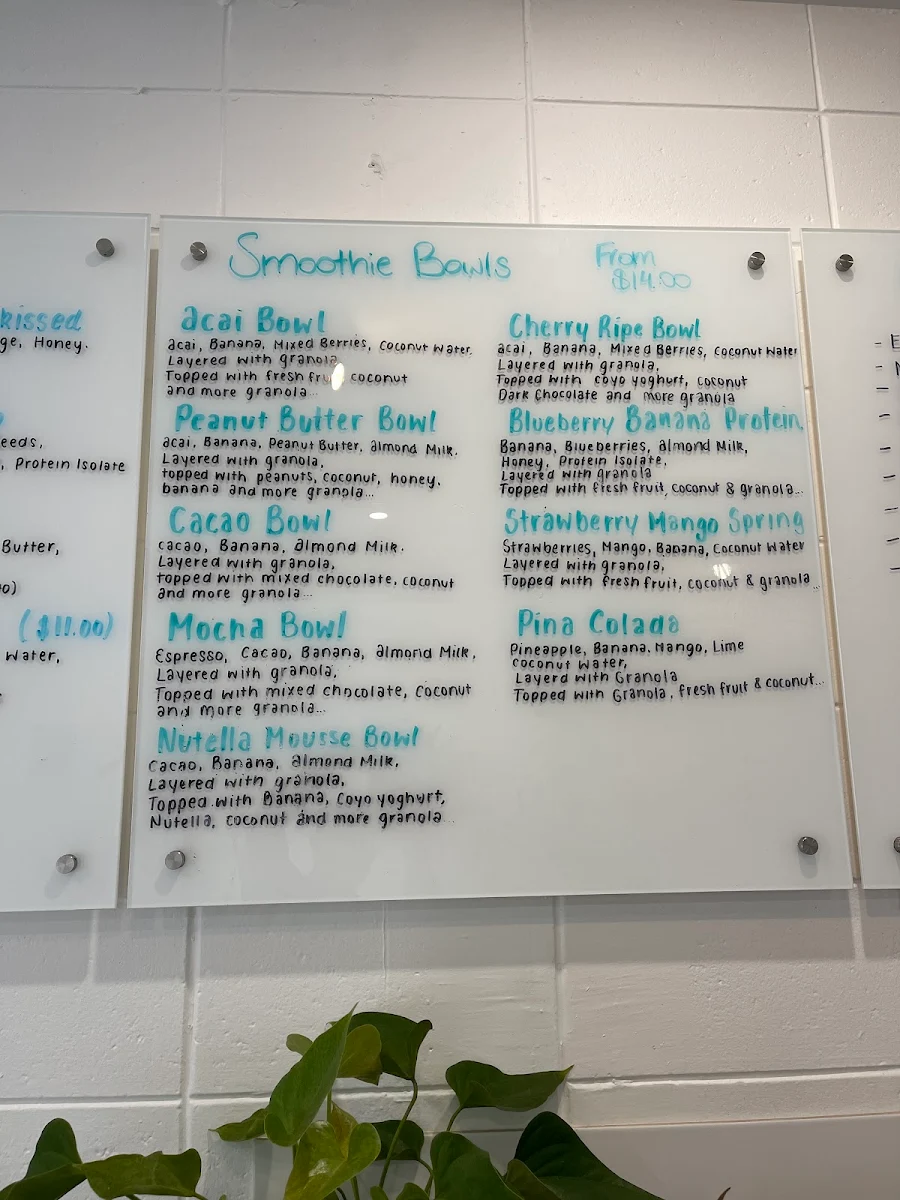 kissed
ge, Honey.
eeds,
, Protein Isolate
Butter,
($11.00)
Water,
Smoothie Bowls
From
$14.00
acai Bowl
acai, Banana, Mixed Berries, Coconut Water.
Layered with granola
Topped with fresh fruit, coconut
and more granola...
Peanut Butter Bowl
acai, Banana, Peanut Butter, almond Milk.
Layered with granola,
topped with peanuts, coconut, honey.
banana and more granola...
Cacao Bowl
cacao, Banana, almond Milk.
Layered with granola,
topped with mixed chocolate, coconut
and more granola...
Mocha Bowl
Espresso, Cacao, Banana, almond Milk,
Layered with granola,
Topped with mixed chocolate, coconut
and more granola...
Nutella Mousse Bowl
Cacao, Banana, almond Milk,
Layered with granola,
Topped with Banana, Coyo yoghurt,
Nutella, coconut and more granola...
Cherry Ripe Bowl
acai, Banana, Mixed Berries, coconut Water
Layered with granola,
Topped with coyo yoghurt, coconut
Dark Chocolate and more granola
Blueberry Banana Protein
Banana, Blueberries, almond Milk,
Honey, Protein Isolate,
Layered with granola
Topped with fresh fruit, coconut & granola...
Strawberry Mango Spring
Strawberries, Mango, Banana, Coconut Water
Layered with granola,
Topped with fresh fruit, coconut & granola...
Pina Colada
Pineapple, Banana, Mango, Lime
coconut water,
Layerd with Granola
Topped with Granola, fresh fruit & coconut...